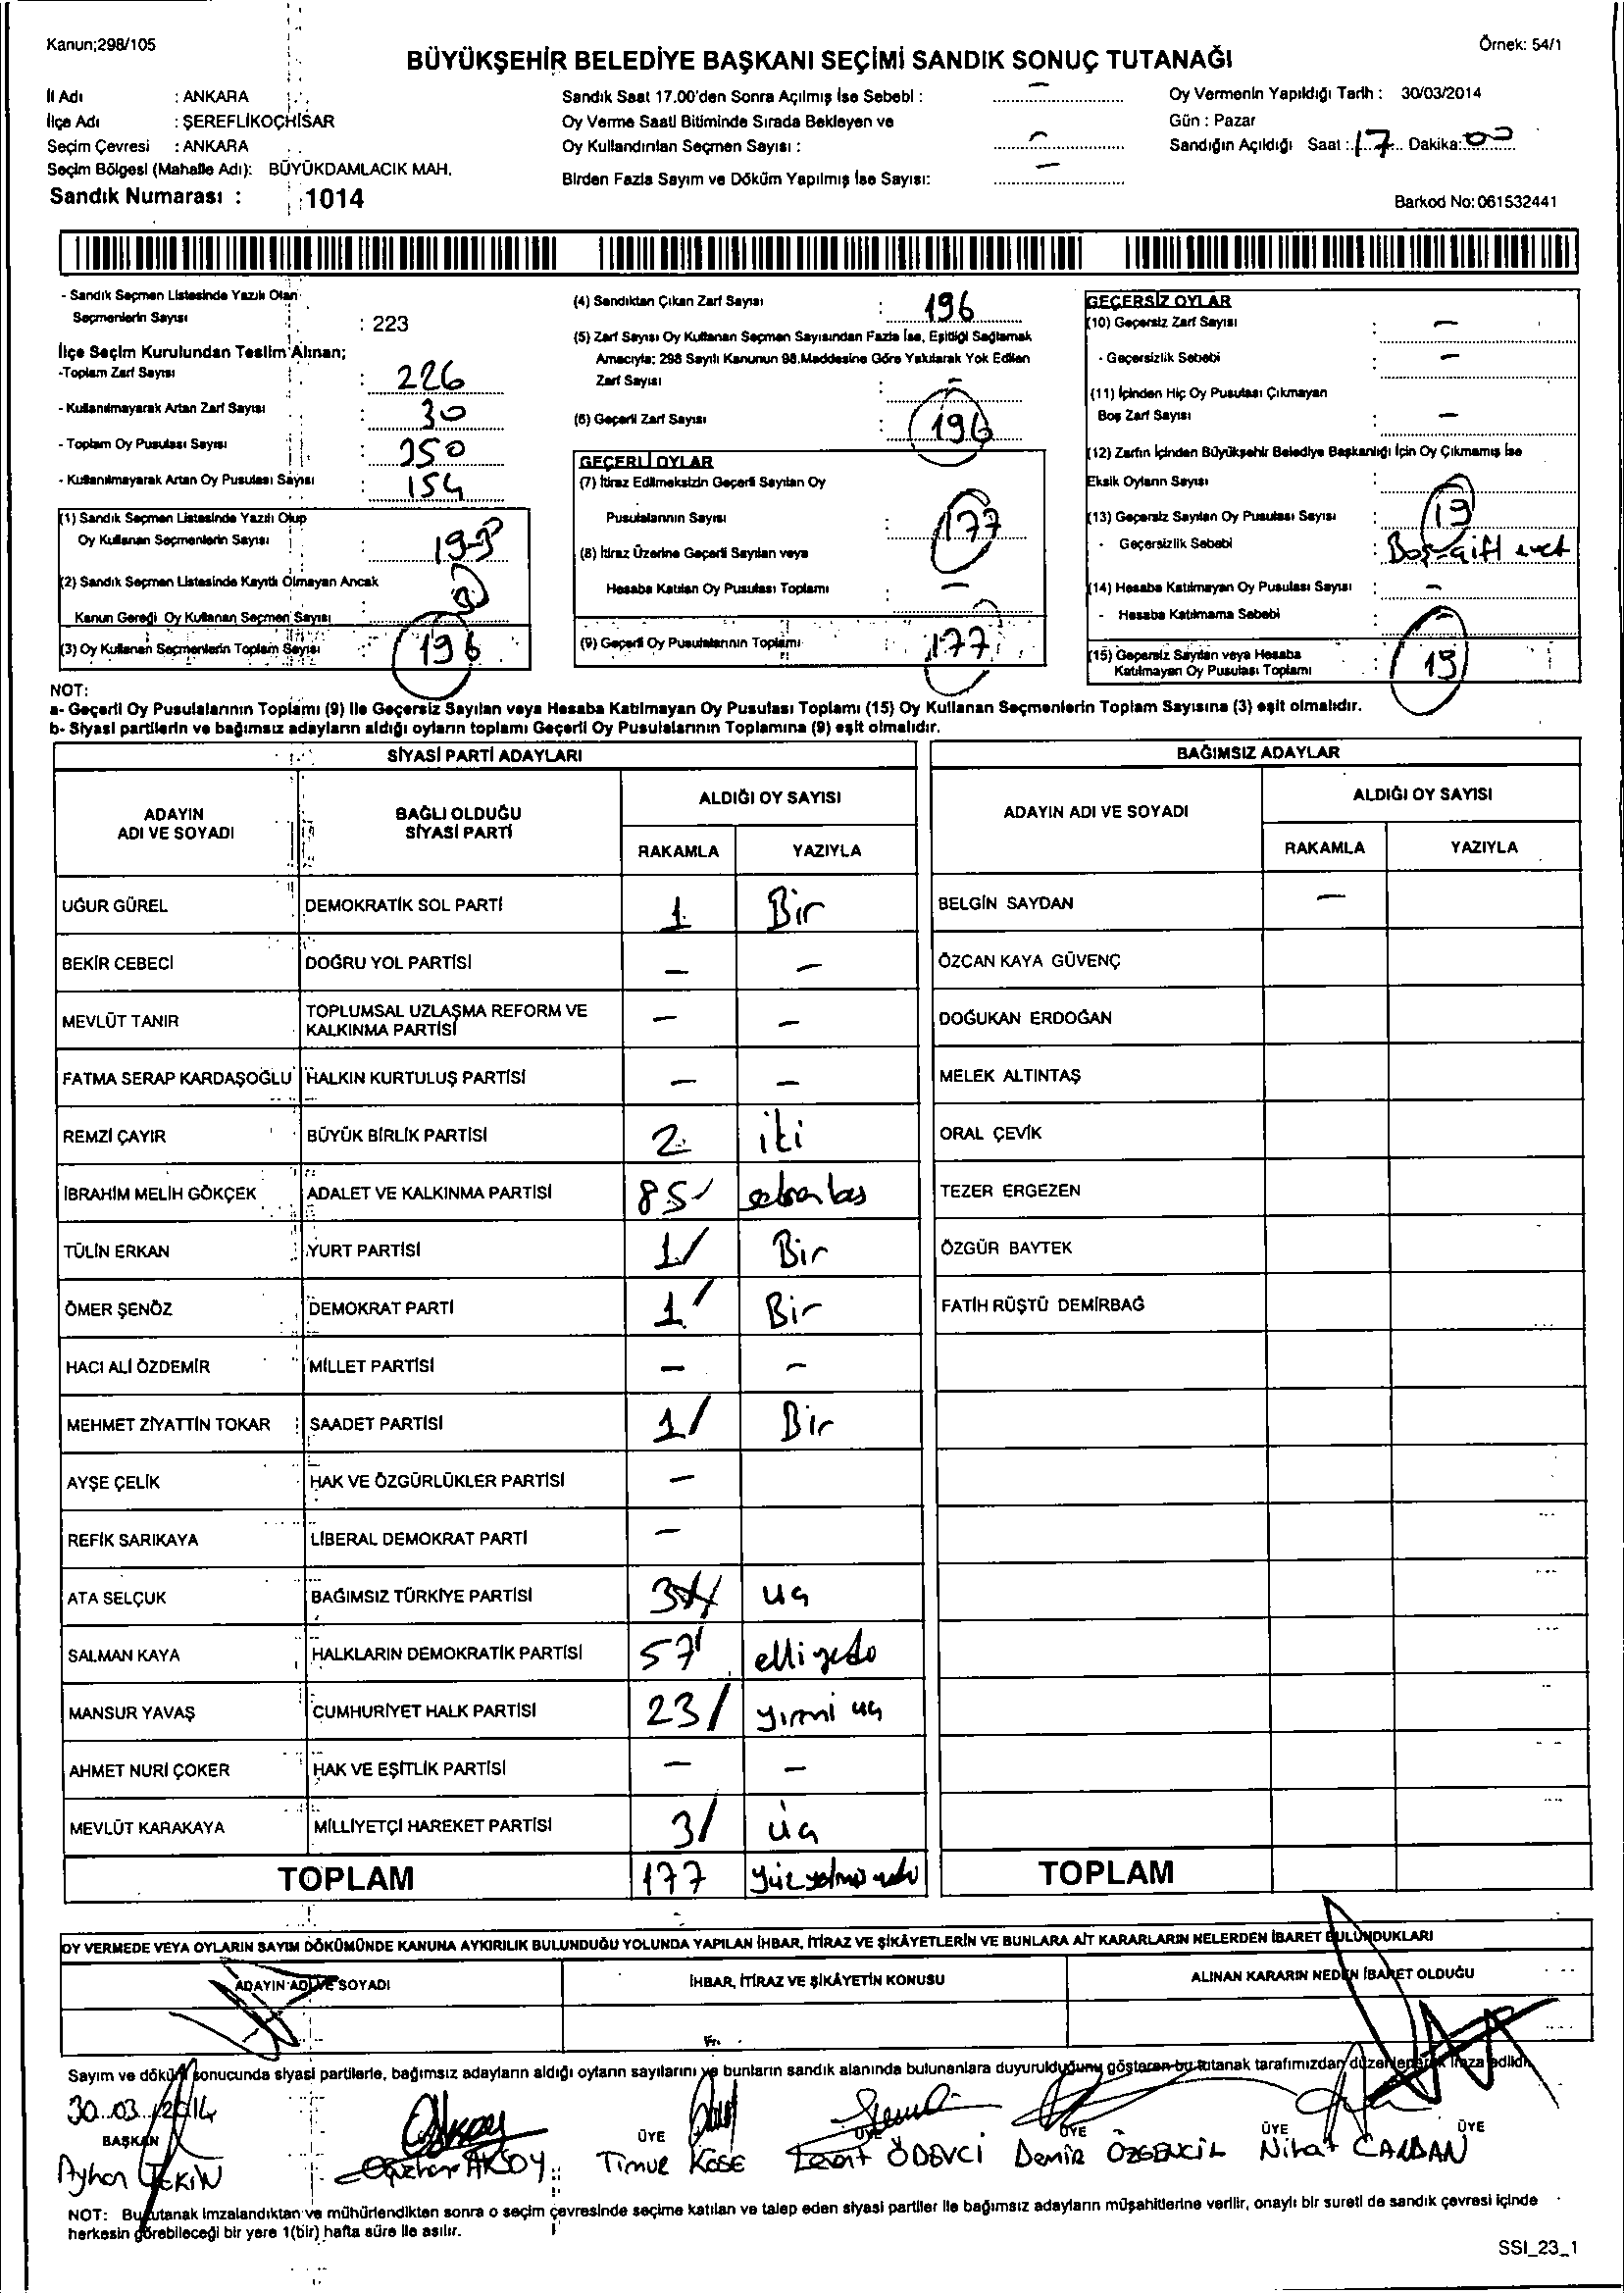 Kanun;298/105
Örnek: 54/1
BÜYÜKŞEHİR BELEDİYE BAŞKANI SEÇİMİ SANDIK SONUÇ TUTANAĞI
İl Adı : ANKARA
İlçe Adı : ŞEREFLİKOÇHİSAR
Seçim Çevresi : ANKARA
Seçim Bölgesi (Mahalle Adı): BÜYÜKDAMLACIK MAH.
Sandık Numarası : 1014
Sandık Saat 17.00'den Sonra Açılmış İse Sebebi : –
Oy Verme Saati Bitiminde Sırada Bekleyen ve
Oy Kullandırılan Seçmen Sayısı : –
Birden Fazla Sayım ve Döküm Yapılmış İse Sayısı: –
Oy Vermenin Yapıldığı Tarih : 30/03/2014
Gün : Pazar
Sandığın Açıldığı Saat : 17 Dakika: 00
Barkod No: 061532441
- Sandık Seçmen Listesinde Yazılı Olan
Seçmenlerin Sayısı : 223
İlçe Seçim Kurulundan Teslim Alınan;
-Toplam Zarf Sayısı : 226
- Kullanılmayarak Artan Zarf Sayısı : 30
- Toplam Oy Pusulası Sayısı : 350
- Kullanılmayarak Artan Oy Pusulası Sayısı : 154
(1) Sandık Seçmen Listesinde Yazılı Olup
Oy Kullanan Seçmenlerin Sayısı :
(2) Sandık Seçmen Listesinde Kayıtlı Olmayan Ancak
Kanun Gereği Oy Kullanan Seçmen Sayısı :
(3) Oy Kullanan Seçmenlerin Toplam Sayısı : 196
(4) Sandıktan Çıkan Zarf Sayısı : 196
(5) Zarf Sayısı Oy Kullanan Seçmen Sayısından Fazla İse, Eşitliği Sağlamak
Amacıyla; 298 Sayılı Kanunun 98.Maddesine Göre Yakılarak Yok Edilen
Zarf Sayısı : –
(6) Geçerli Zarf Sayısı : 196
GEÇERLİ OYLAR
(7) İtiraz Edilmeksizin Geçerli Sayılan Oy
Pusulalarının Sayısı : 177
(8) İtiraz Üzerine Geçerli Sayılan veya
Hesaba Katılan Oy Pusulası Toplamı : –
(9) Geçerli Oy Pusulalarının Toplamı : 177
GEÇERSİZ OYLAR
(10) Geçersiz Zarf Sayısı : –
- Geçersizlik Sebebi : –
(11) İçinden Hiç Oy Pusulası Çıkmayan
Boş Zarf Sayısı : –
(12) Zarfın İçinden Büyükşehir Belediye Başkanlığı İçin Oy Çıkmamış İse
Eksik Oyların Sayısı :
(13) Geçersiz Sayılan Oy Pusulası Sayısı : 19
- Geçersizlik Sebebi : Boş-çift evet
(14) Hesaba Katılmayan Oy Pusulası Sayısı : –
- Hesaba Katılmama Sebebi : –
(15) Geçersiz Sayılan veya Hesaba
Katılmayan Oy Pusulası Toplamı : 19
NOT:
a- Geçerli Oy Pusulalarının Toplamı (9) İle Geçersiz Sayılan veya Hesaba Katılmayan Oy Pusulası Toplamı (15) Oy Kullanan Seçmenlerin Toplam Sayısına (3) eşit olmalıdır.
b- Siyasi partilerin ve bağımsız adayların aldığı oyların toplamı Geçerli Oy Pusulalarının Toplamına (9) eşit olmalıdır.
SİYASİ PARTİ ADAYLARI
ADAYIN ADI VE SOYADI BAĞLI OLDUĞU SİYASİ PARTİ ALDIĞI OY SAYISI RAKAMLA YAZIYLA
UĞUR GÜREL DEMOKRATİK SOL PARTİ 1 Bir
BEKİR CEBECİ DOĞRU YOL PARTİSİ – –
MEVLÜT TANIR TOPLUMSAL UZLAŞMA REFORM VE KALKINMA PARTİSİ – –
FATMA SERAP KARDAŞOĞLU HALKIN KURTULUŞ PARTİSİ – –
REMZİ ÇAYIR BÜYÜK BİRLİK PARTİSİ 2 iki
İBRAHİM MELİH GÖKÇEK ADALET VE KALKINMA PARTİSİ 85 seksen beş
TÜLİN ERKAN YURT PARTİSİ 1 Bir
ÖMER ŞENÖZ DEMOKRAT PARTİ 1 Bir
HACI ALİ ÖZDEMİR MİLLET PARTİSİ – –
MEHMET ZİYATTİN TOKAR SAADET PARTİSİ 1 Bir
AYŞE ÇELİK HAK VE ÖZGÜRLÜKLER PARTİSİ –
REFİK SARIKAYA LİBERAL DEMOKRAT PARTİ –
ATA SELÇUK BAĞIMSIZ TÜRKİYE PARTİSİ 3 üç
SALMAN KAYA HALKLARIN DEMOKRATİK PARTİSİ 57 elli yedi
MANSUR YAVAŞ CUMHURİYET HALK PARTİSİ 23 yirmi üç
AHMET NURİ ÇOKER HAK VE EŞİTLİK PARTİSİ – –
MEVLÜT KARAKAYA MİLLİYETÇİ HAREKET PARTİSİ 3 üç
TOPLAM 177 yüz yetmiş yedi
BAĞIMSIZ ADAYLAR
ADAYIN ADI VE SOYADI ALDIĞI OY SAYISI RAKAMLA YAZIYLA
BELGİN SAYDAN –
ÖZCAN KAYA GÜVENÇ
DOĞUKAN ERDOĞAN
MELEK ALTINTAŞ
ORAL ÇEVİK
TEZER ERGEZEN
ÖZGÜR BAYTEK
FATİH RÜŞTÜ DEMİRBAĞ
TOPLAM
OY VERMEDE VEYA OYLARIN SAYIM DÖKÜMÜNDE KANUNA AYKIRILIK BULUNDUĞU YOLUNDA YAPILAN İHBAR, İTİRAZ VE ŞİKÂYETLERİN VE BUNLARA AİT KARARLARIN NELERDEN İBARET BULUNDUKLARI
ADAYIN ADI VE SOYADI İHBAR, İTİRAZ VE ŞİKÂYETİN KONUSU ALINAN KARARIN NEDEN İBARET OLDUĞU
Sayım ve döküm sonucunda siyasi partilerle, bağımsız adayların aldığı oyların sayılarını ve bunların sandık alanında bulunanlara duyurulduğunu gösteren bu tutanak tarafımızdan düzenlenerek imza edildi.
30.03.2014
BAŞKAN ÜYE ÜYE ÜYE ÜYE ÜYE
Ayhan TEKİN Oğuzhan AKSOY Timur KÖSE Levent ÖDEVCİ Demir ÖZGENCİL Nihat CANDAN
NOT: Bu tutanak imzalandıktan ve mühürlendikten sonra o seçim çevresinde seçime katılan ve talep eden siyasi partiler ile bağımsız adayların müşahitlerine verilir, onaylı bir sureti de sandık çevresi içinde
herkesin görebileceği bir yere 1(bir) hafta süre ile asılır.
SSI_23_1